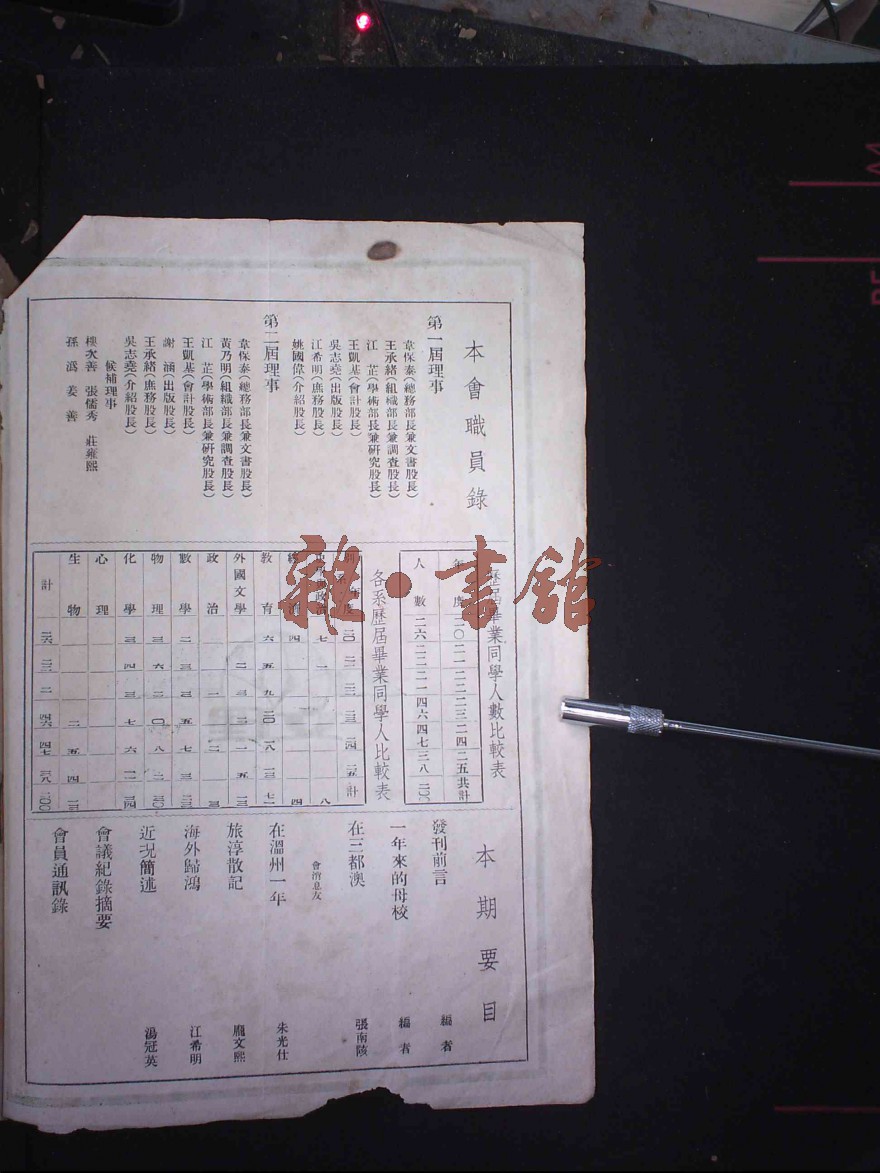 本會職員錄
第一屆理事
韋保泰(總務部長兼文書股長)
王承緒(組織部長兼調查股長)
江 芷(學術部長兼研究股長)
王凱基(會計股長)
吳志堯(出版股長)
江希明(庶務股長)
姚國偉(介紹股長)
第二屆理事
韋保泰(總務部長兼文書股長)
黃乃明(組織部長兼調查股長)
江 芷(學術部長兼研究股長)
王凱基(會計股長)
謝 涵(出版股長)
王承緒(庶務股長)
吳志堯(介紹股長)
候補理事
樓次善 張儒秀 莊雍熙
孫 溈 姜 善
歷屆畢業同學人數比較表
年度 二〇 二一 二二 二三 二四 二五 共計
人數 二六 二二 二一 四六 四七 三八 二〇〇
各系歷屆畢業同學人比較表
教育 六 五 九 二〇 一八 一三 七一
外國文學
數學 二 三 二 五 七 三 二二
政治
物理 三 六 二 一〇 八
化學 三 四 三 七 六
心理
生物
計
雜·書館
本期要目
發刊前言 編者
一年來的母校 編者
在三都澳 張南陔
會濟息友
在溫州一年 朱光仕
旅淳散記 龐文熙
海外歸鴻 江希明
近況簡述 湯冠英
會議紀錄摘要
會員通訊錄
A4